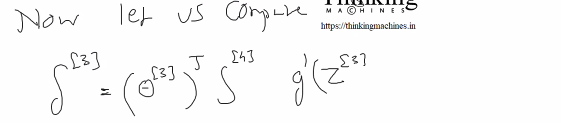 Now let us Compute
Thinking
MACHINES
https://thinkingmachines.in
δ^[3] = (Θ^[3])^T δ^[4] g'(Z^[3]